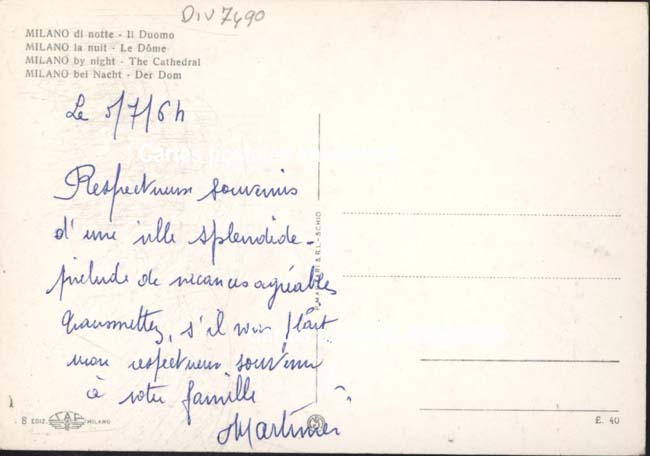 Div 7490
MILANO di notte - Il Duomo
MILANO la nuit - Le Dôme
MILANO by night - The Cathedral
MILANO bei Nacht - Der Dom
Le 5/7/64
Respectueux souvenirs
d'une ville splendide -
prélude de vacances agréables
Transmettez, s'il vous plaît
mon respectueux souvenir
à votre famille
8 EDIZ. SAF MILANO
£. 40